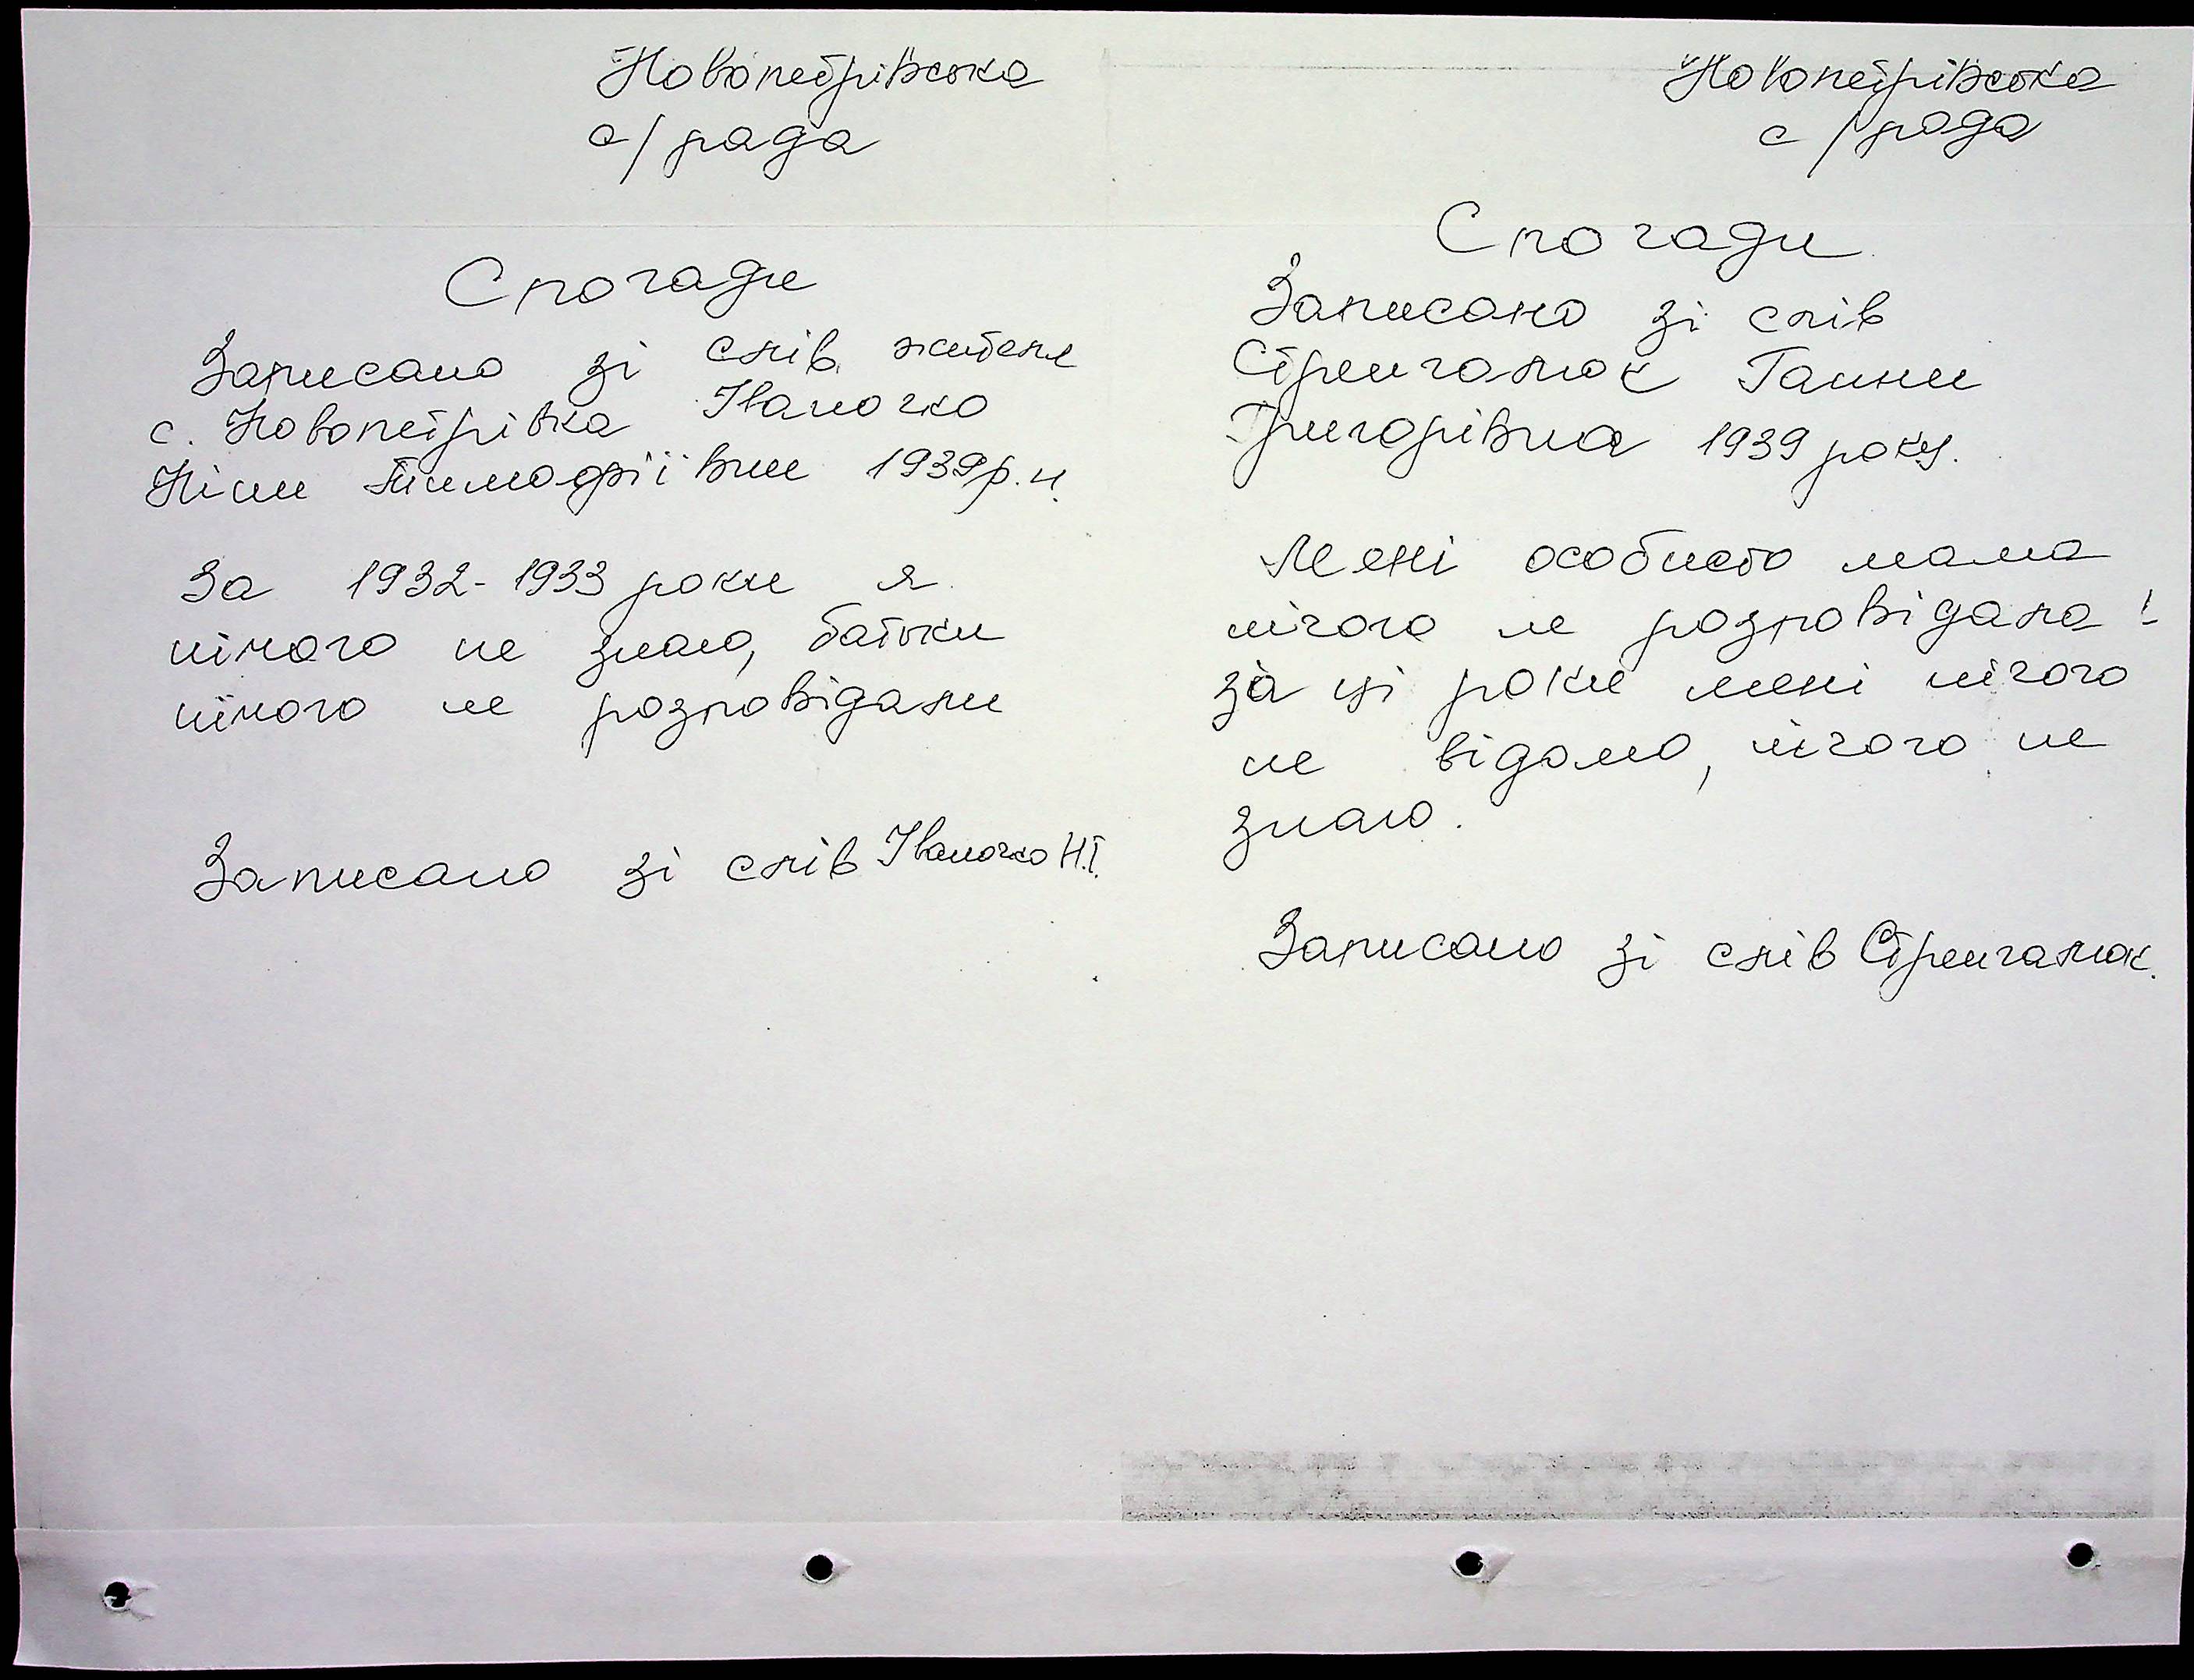 Новопетрівська
с/рада
Спогади
Записано зі слів жителя
с. Новопетрівка Іваночко
Ніни Тимофіївни 1939р.н.
За 1932-1933 роки я
нічого не знаю, батьки
нічого не розповідали
Записано зі слів Іваночко Н.Т.
Новопетрівська
с/рада
Спогади
Записано зі слів
Стренгалюк Ганни
Григорівна 1939 року.
Мені особисто мама
нічого не розповідала!
за ці роки мені нічого
не відомо, нічого не
знаю.
Записано зі слів Стренгалюк.